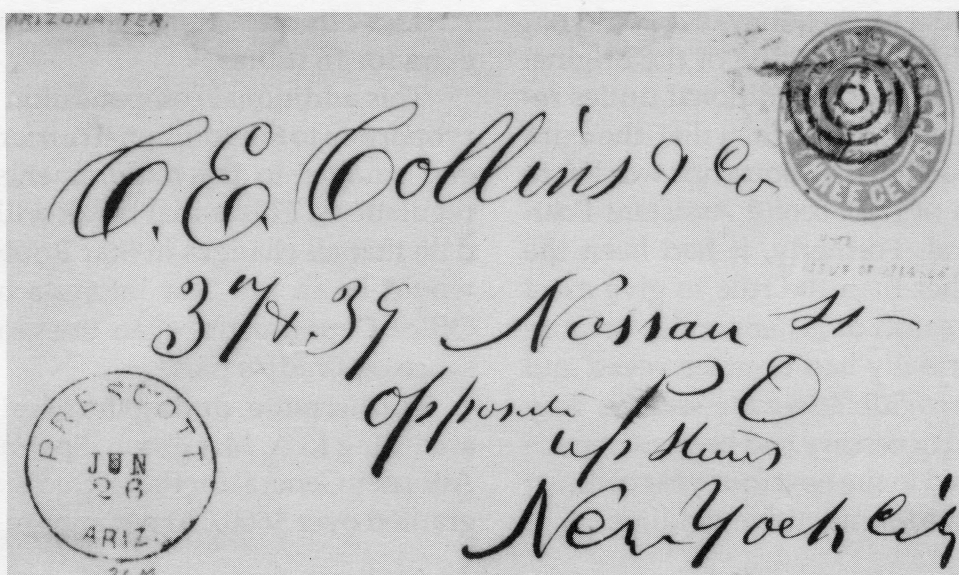 ARIZONA TER.
UNITED STATES
THREE CENTS
C. E. Collins & Co
37 & 39 Nassau St
opposite P. O
up stairs
New York City
PRESCOTT
JUN
26
ARIZ.